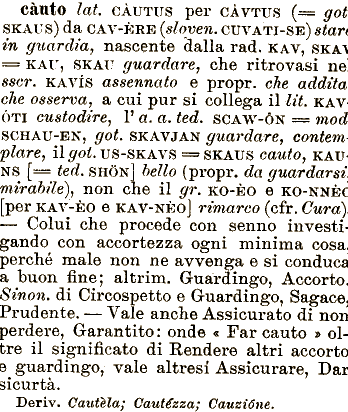 càuto lat. CÀUTUS per CÀVTUS (= got.
SKAUS) da CAV-ÈRE (sloven. CUVATI-SE) stare
in guardia, nascente dalla rad. KAV, SKAV
= KAU, SKAU guardare, che ritrovasi nel
sscr. KAVÍS assennato e propr. che addita,
che osserva, a cui pur si collega il lit. KAV-
ÓTI custodire, l'a. a. ted. SCAW-ÔN = mod.
SCHAU-EN, got. SKAVJAN guardare, contem-
plare, il got. US-SKAVS = SKAUS cauto, KAU-
NS [= ted. SHÖN] bello (propr. da guardarsi,
mirabile), non che il gr. KO-ÈO e KO-NNÈO
[per KAV-ÈO e KAV-NÈO] rimarco (cfr. Cura).
— Colui che procede con senno investi-
gando con accortezza ogni minima cosa,
perché male non ne avvenga e si conduca
a buon fine; altrim. Guardingo, Accorto.
Sinon. di Circospetto e Guardingo, Sagace,
Prudente. — Vale anche Assicurato di non
perdere, Garantito: onde « Far cauto » ol-
tre il significato di Rendere altri accorto
e guardingo, vale altresí Assicurare, Dar
sicurtà.
Deriv. Cautèla; Cautézza; Cauzióne.